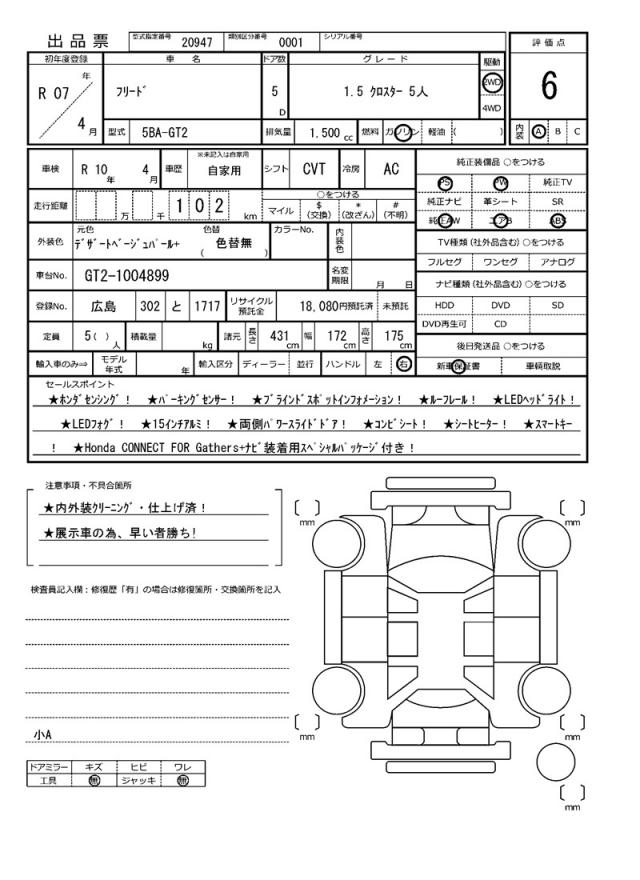 出品票 型式指定番号 20947 類別区分番号 0001 シリアル番号
初年度登録 車名 ドア数 グレード 駆動 評価点
R 07 年 4 月 フリード 5 D 1.5 クロスター 5人 2WD 4WD 6
型式 5BA-GT2 排気量 1.500 cc 燃料 ガソリン 軽油 ( ) 内装 A B C
車検 R 10 年 4 月 車歴 ※未記入は自家用 自家用 シフト CVT 冷房 AC
純正装備品 ○をつける
PS PW 純正TV
純正ナビ 革シート SR
純正AW エアB ABS
走行距離 万 千 1 0 2 km ○をつける マイル $(交換) *(改ざん) #(不明)
TV種類(社外品含む)○をつける
フルセグ ワンセグ アナログ
外装色 元色 デザートベージュパール+ 色替 ( 色替無 ) カラーNo. 内装色
車台No. GT2-1004899 名変期限 月 日
ナビ種類(社外品含む)○をつける
HDD DVD SD
DVD再生可 CD
登録No. 広島 302 と 1717 リサイクル預託金 18,080円預託済 未預託
定員 5( )人 積載量 kg 諸元 長さ 431 cm 幅 172 cm 高さ 175 cm
後日発送品 ○をつける
新車保証書 車輌取説
輸入車のみ⇒ モデル年式 年 輸入区分 ディーラー 並行 ハンドル 左 右
セールスポイント
★ホンダセンシング! ★パーキングセンサー! ★ブラインドスポットインフォメーション! ★ルーフレール! ★LEDヘッドライト!
★LEDフォグ! ★15インチアルミ! ★両側パワースライドドア! ★コンビシート! ★シートヒーター! ★スマートキー
! ★Honda CONNECT FOR Gathers+ナビ装着用スペシャルパッケージ付き!
注意事項・不具合箇所
★内外装クリーニング・仕上げ済!
★展示車の為、早い者勝ち!
検査員記入欄:修復歴「有」の場合は修復箇所・交換箇所を記入
小A
ドアミラー キズ ヒビ ワレ
工具 無 ジャッキ 無
mm
mm
mm
mm
mm